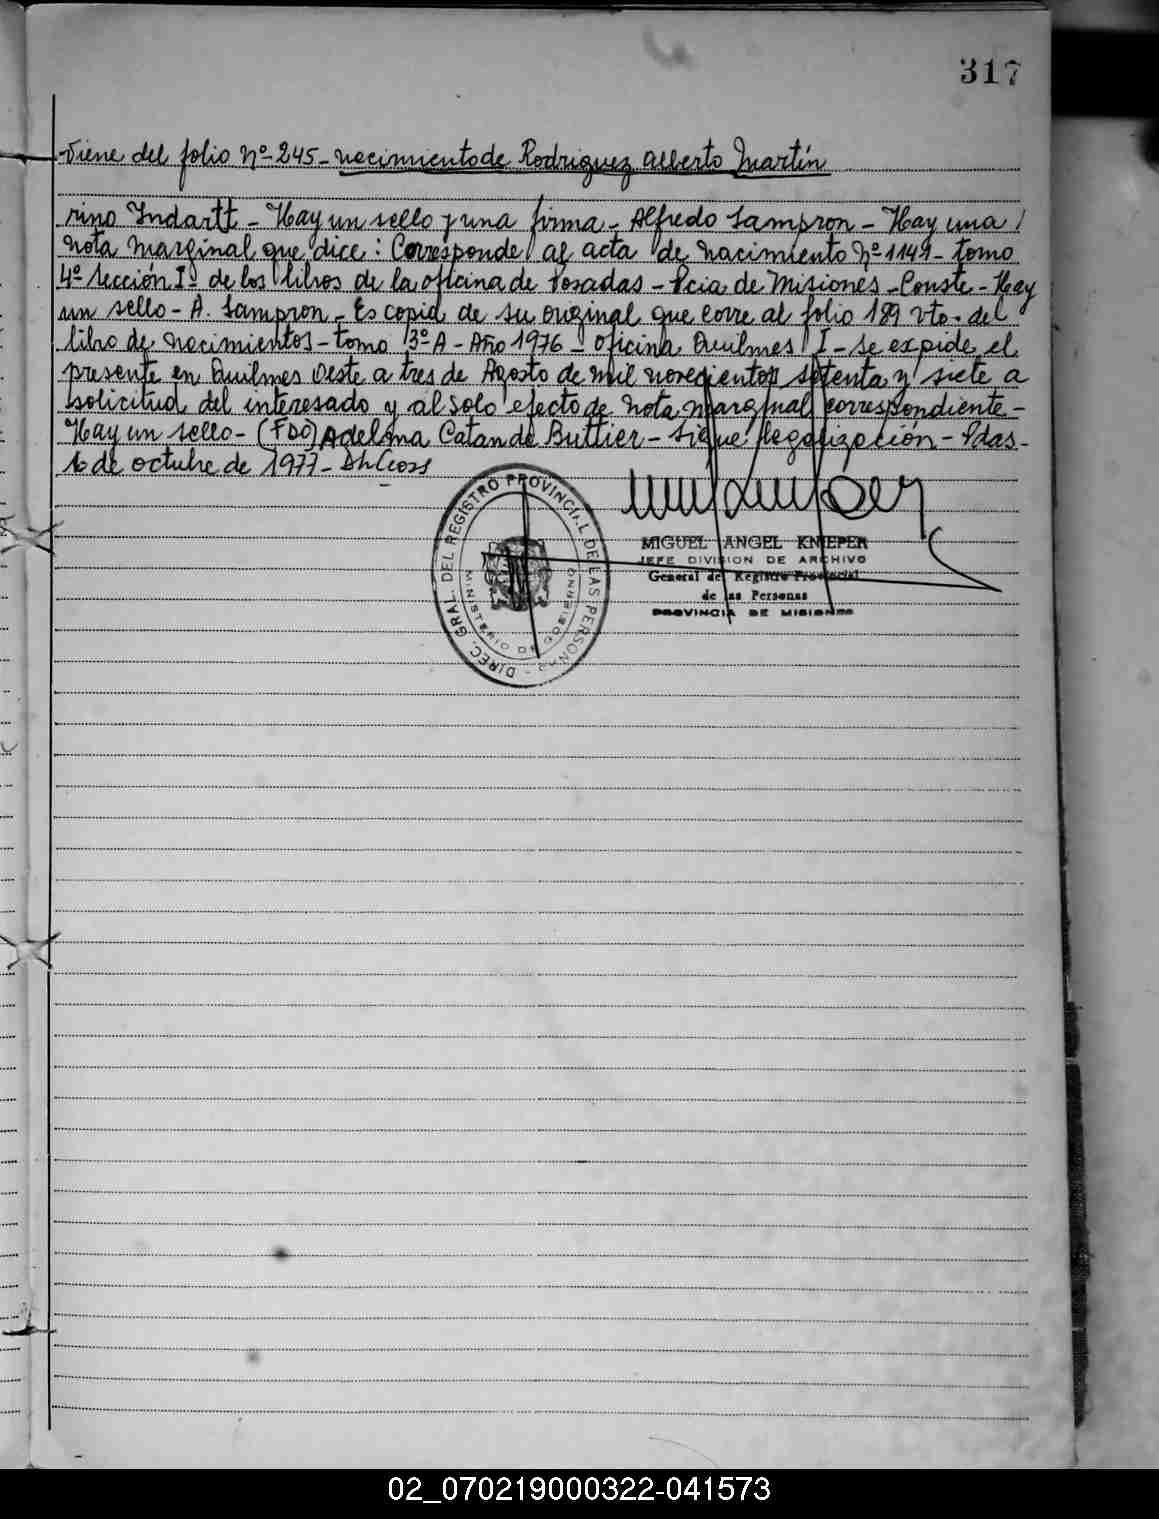 317
Viene del folio Nº 245 - nacimiento de Rodriguez Alberto Martín
rino Indartt - Hay un sello y una firma - Alfredo Sampron - Hay una /
nota marginal que dice: Corresponde al acta de nacimiento Nº 1149 - tomo
4º Sección Iª de los libros de la oficina de Posadas - Pcia de Misiones - Conste - Hay
un sello - A. Sampron - Es copia de su original que corre al folio 189 vto. del
libro de nacimientos - tomo 3º A - Año 1976 - oficina Quilmes I - se expide el
presente en Quilmes Oeste a tres de Agosto de mil novecientos setenta y siete a
solicitud del interesado y al solo efecto de nota marginal correspondiente -
Hay un sello - (FDO) Adelma Catan de Buttier - Sigue legalización - Pdas -
6 de octubre de 1977 -
DIREC. GRAL. DEL REGISTRO PROVINCIAL DE LAS PERSONAS -
MINISTERIO DE GOBIERNO
MIGUEL ANGEL KNIEPER
JEFE DIVISION DE ARCHIVO
General del Registro Provincial
de las Personas
PROVINCIA DE MISIONES
02_070219000322-041573